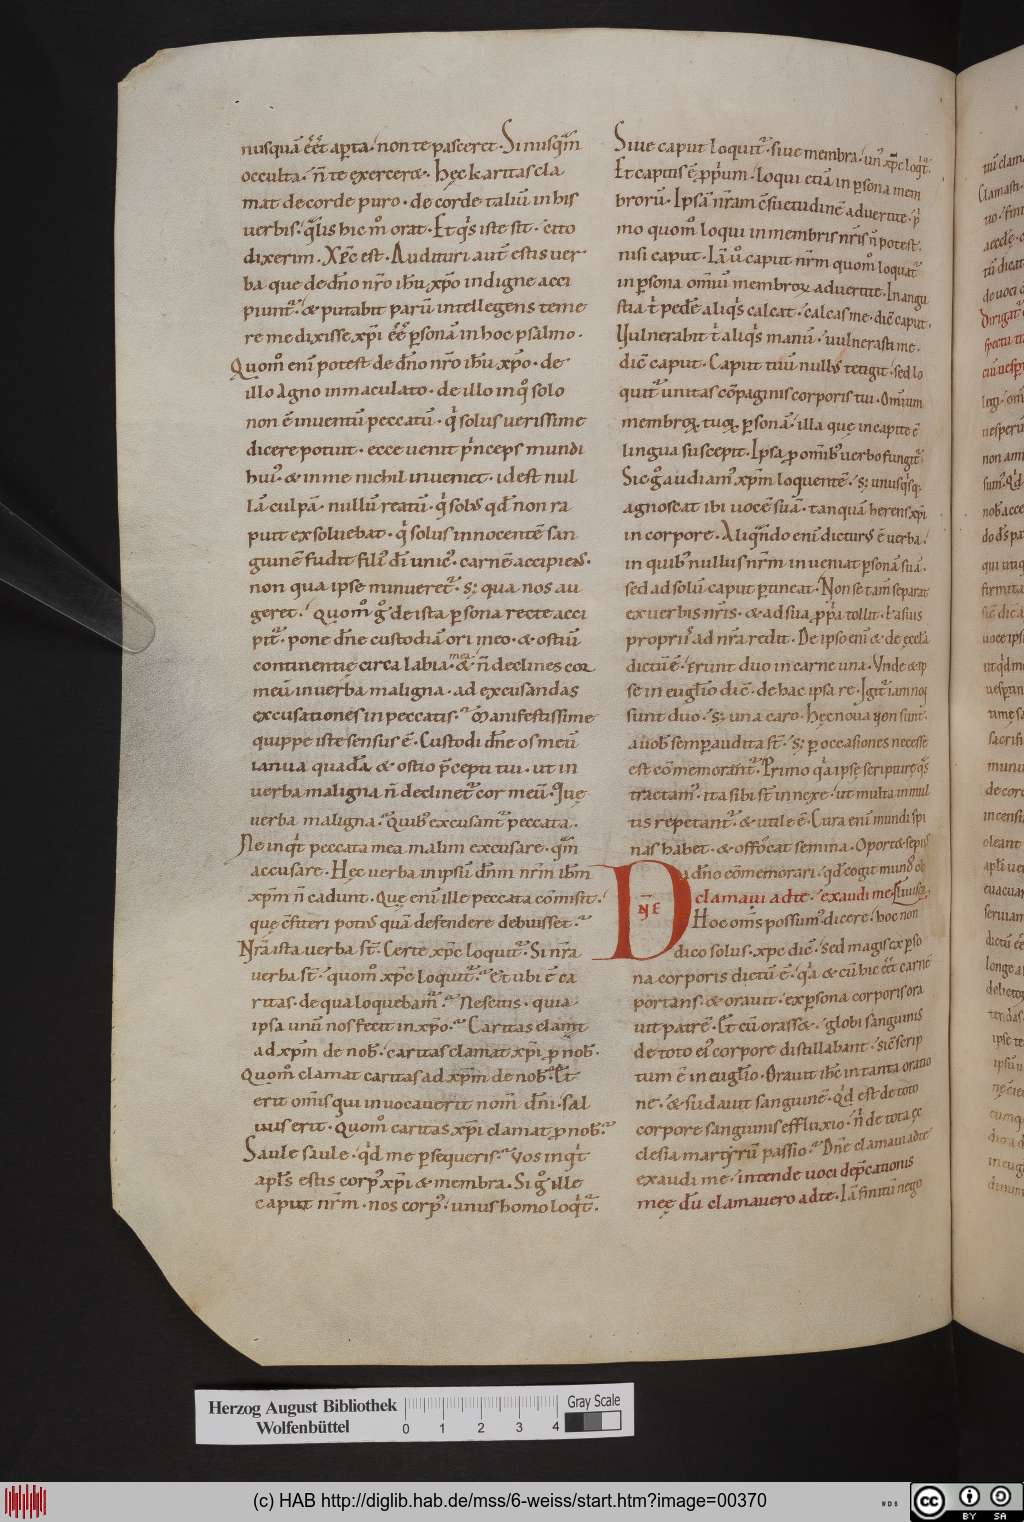 nusquā ēēt aꝑta· non te pasceret· Si nusq̄m
occulta· ñ te exerceret· hęc karitas cla
mat de corde puro· de corde taliū in his
uerbis· q̄lis hic m̊ orat· Et q's iste sit· cito
dixerim· Xp̄c est· Audituri aut̄ estis uer
ba que de dn̄o nr̄o ihū xp̄o indigne acci
piunt᷑· & putabit parū intellegens teme
re me dixisse xp̄i ēē ꝑsonā in hoc psalmo·
Quom̊ eni potest de dn̄o nr̄o ihū xp̄o· de
illo Agno inmaculato· de illo in q̊ solo
non ē inuentū peccatū· q' solus uerissime
dicere potuit· ecce uenit p'nceps mundi
hui᷒· & in me nichil inueniet· id est nul
lā culpā· nullū reatū· q' sol᷒ qd̄ non ra
puit exsoluebat· q' solus innocentē san
guinē fudit fili᷒ dī unic᷒· carnē accipiens·
non qua ipse minueret᷑· s; qua nos au
geret· Quom̊ g̊ de ista ꝑsona recte acci
pit᷑· pone dn̄e custodiā ori meo· & ostiū
continentię circa labia mea· & ñ declines cor
meū in uerba maligna· ad excusandas
excusationes in peccatis· Manifestissime
quippe iste sensus ē· Custodi dn̄e os meū
ianua quadā· & ostio p̄cepti tui· ut in
uerba maligna ñ declinet᷑ cor meū· Quę
uerba maligna· Quib᷒ excusant᷑ peccata·
Ne inq't peccata mea malim excusare· q̄m
accusare· Hęc uerba in ipsū dn̄m nr̄m ihm̄
xp̄m ñ cadunt· Quę eni ille peccata cōmisit·
que c̄fiteri poti᷒ quā defendere debuisset·
Nr̄a ista uerba st̄· Certe xp̄c loquit᷑· Si nr̄a
uerba st̄· quom̊ xp̄c loquit᷑· Et ubi ē ca
ritas· de qua loquebam᷑· Nescitis· quia
ipsa unū nos fecit in xp̄o· Caritas clamat
ad xp̄m de nob᷒· caritas clamat xp̄i ꝓ nob᷒·
Quom̊ clamat caritas ad xp̄m de nob᷒· Et
erit om̄is qui inuocauerit nom̄ dn̄i· sal
uus erit· Quom̊ caritas xp̄i clamat ꝓ nob᷒·
Saule saule· q'd me ꝑsequeris· Vos inq't
apl's estis corp᷒ xp̄i & membra· Si g̊ ille
caput nr̄m· nos corp᷒· unus homo loq't᷑·
Siue caput loquit᷑· siue membra· un᷒ xp̄c loq't᷑·
Et capitis ē ꝓp'um· loqui etiā in ꝑsona mem
brorū· Ipsā nr̄am c̄suetudinē aduertite· p'
mo quom̊ loqui in membris nr̄is ñ potest·
nisi caput· Iā ů caput nr̄m quom̊ loquat᷑
in ꝑsona om̄iū membroꝝ aduertite· In angu
stia t' pedē aliq's calcat· calcas me· dic̄ caput·
Vulnerabit t' aliq's manū· uulnerasti me·
dic̄ caput· Caput tuū null᷒ tetigit· sed lo
quit᷑ unitas cōpaginis corporis tui· Omnium
membroꝝ tuoꝝ ꝑsonā· illa quę in capite ē
lingua suscepit· Ipsa ꝓ om̄ib᷒ uerbo fungit᷑·
Sic g̊ audiam᷒ xp̄m loquentē· s; unusq'sq·
agnoscat ibi uocē suā· tanquā herens xp̄i
in corpore· Aliq̄ndo eni dictur᷒ ē uerba·
in quib᷒ nullus nr̄m inueniat ꝑsonā suā·
sed ad solū caput ꝑtineat· Non se tam̄ separat
ex uerbis nr̄is· & ad sua ꝓp'a tollit· t' a suis
propriis ad nr̄a redit· De ipso eni & de eccl̄a
dictū ē· Erunt duo in carne una· Vnde & ip
se in eugl̄io dic̄· de hac ipsa re· Igit᷑ iam non
sunt duo· s; una caro· Hęc noua non sunt·
a uob᷒ semꝑ audita st̄· s; ꝑ occasiones necesse
est cōmemorant᷑· Primo q'a ipsę scripturę q̄s
tractam᷒· ita sibi st̄ innexe· ut multa in mul
tis repetant᷑· & utile ē· Cura eni mundi spi
nas habet· & offōcat semina· Oportet sepi᷒
a dn̄o cōmemorari· qd̄ cogit mund᷒ ob
DNE clamaui ad te· exaudi me·
Hoc om̄s possum᷒ dicere· hoc non
dico solus· xp̄c dic̄· Sed magis ex ꝑso
na corporis dictū ē· q'a & cū hic ēēt carnē
portans· & orauit· ex ꝑsona corporis ora
uit patrē· Et cū orasset· globi sanguinis
de toto ei᷒ corpore distillabant· sic ē scrip
tum ē in eugl̄io· Orauit ihc̄ intanta oratio
ne· & sudauit sanguinē· Q'd est de toto
corpore sanguinis effluxio· n' de tota ęc
clesia martyrū passio· Dn̄e clamaui ad te
exaudi me· intende uoci dep̄cationis
meę dū clamauero ad te· Iā finitū nego
Herzog August Bibliothek
Wolfenbüttel
0 1 2 3 4
Gray Scale
(c) HAB http://diglib.hab.de/mss/6-weiss/start.htm?image=00370
WDB
cc BY SA